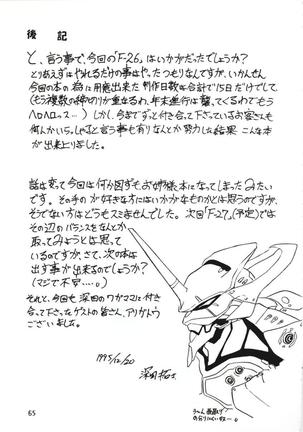 後 記
と、言う事で、今回の「F-26」はいかがだったでしょうか?
とりあえずはやれるだけの事はやったつもりなんですが、いかんせん
今回の本の為に用意出来た制作日数が合計で15日だけでして、
(もう複数の締めりが重なるわ、年末進行は襲ってくるわでもう
ヘロヘロっス…)しかし、今までずっと付き合って下さっているお客さんも
何人かいらっしゃると言う事も有りなんとか努力した結果 こんな本
が出来上りました。
話は変って今回は何か図らずもお姉様本になってしまったみたい
です。その手のが好きな方にはいいかなものかとは思うのですが、
そうでない方はどうもスミませんでした。次回「F-27」(予定)では
その辺のバランスをなんとか
取ってみようとは思って
いるのですが、さて、次の本は
出す事が出来るのでしょうか?
(マジで不安……。)
それと、今回も深田のワガママに付き
合って下さったゲストの皆さん、アリガトウ
ございました。
1995/12/20
深田拓士
65